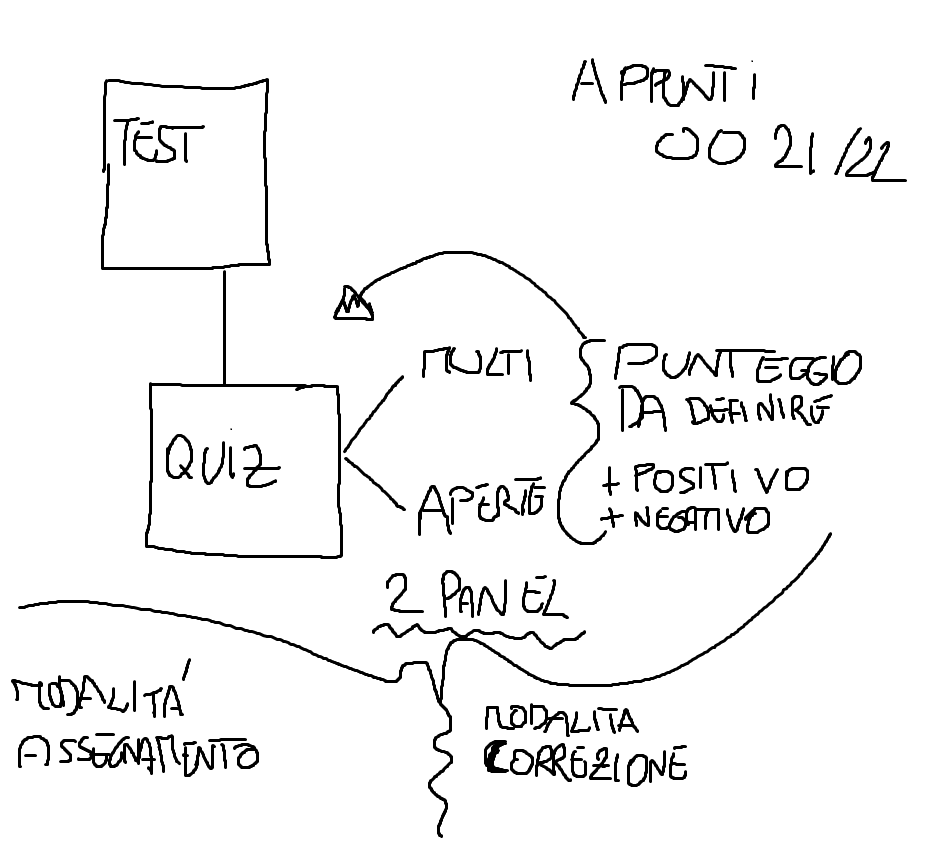 APPUNTI
OO 21/22
TEST
MULTI
PUNTEGGIO
DA DEFINIRE
QUIZ
+ POSITIVO
APERTE
+ NEGATIVO
2 PANEL
MODALITÁ
ASSEGNAMENTO
MODALITA
CORREZIONE